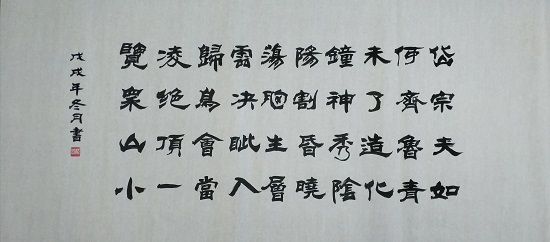 岱宗夫如
何齊魯青
未了造化
鐘神秀陰
陽割昏曉
蕩胸生層
雲決眦入
歸鳥會當
凌絕頂一
覽眾山小
戊戌年冬月書